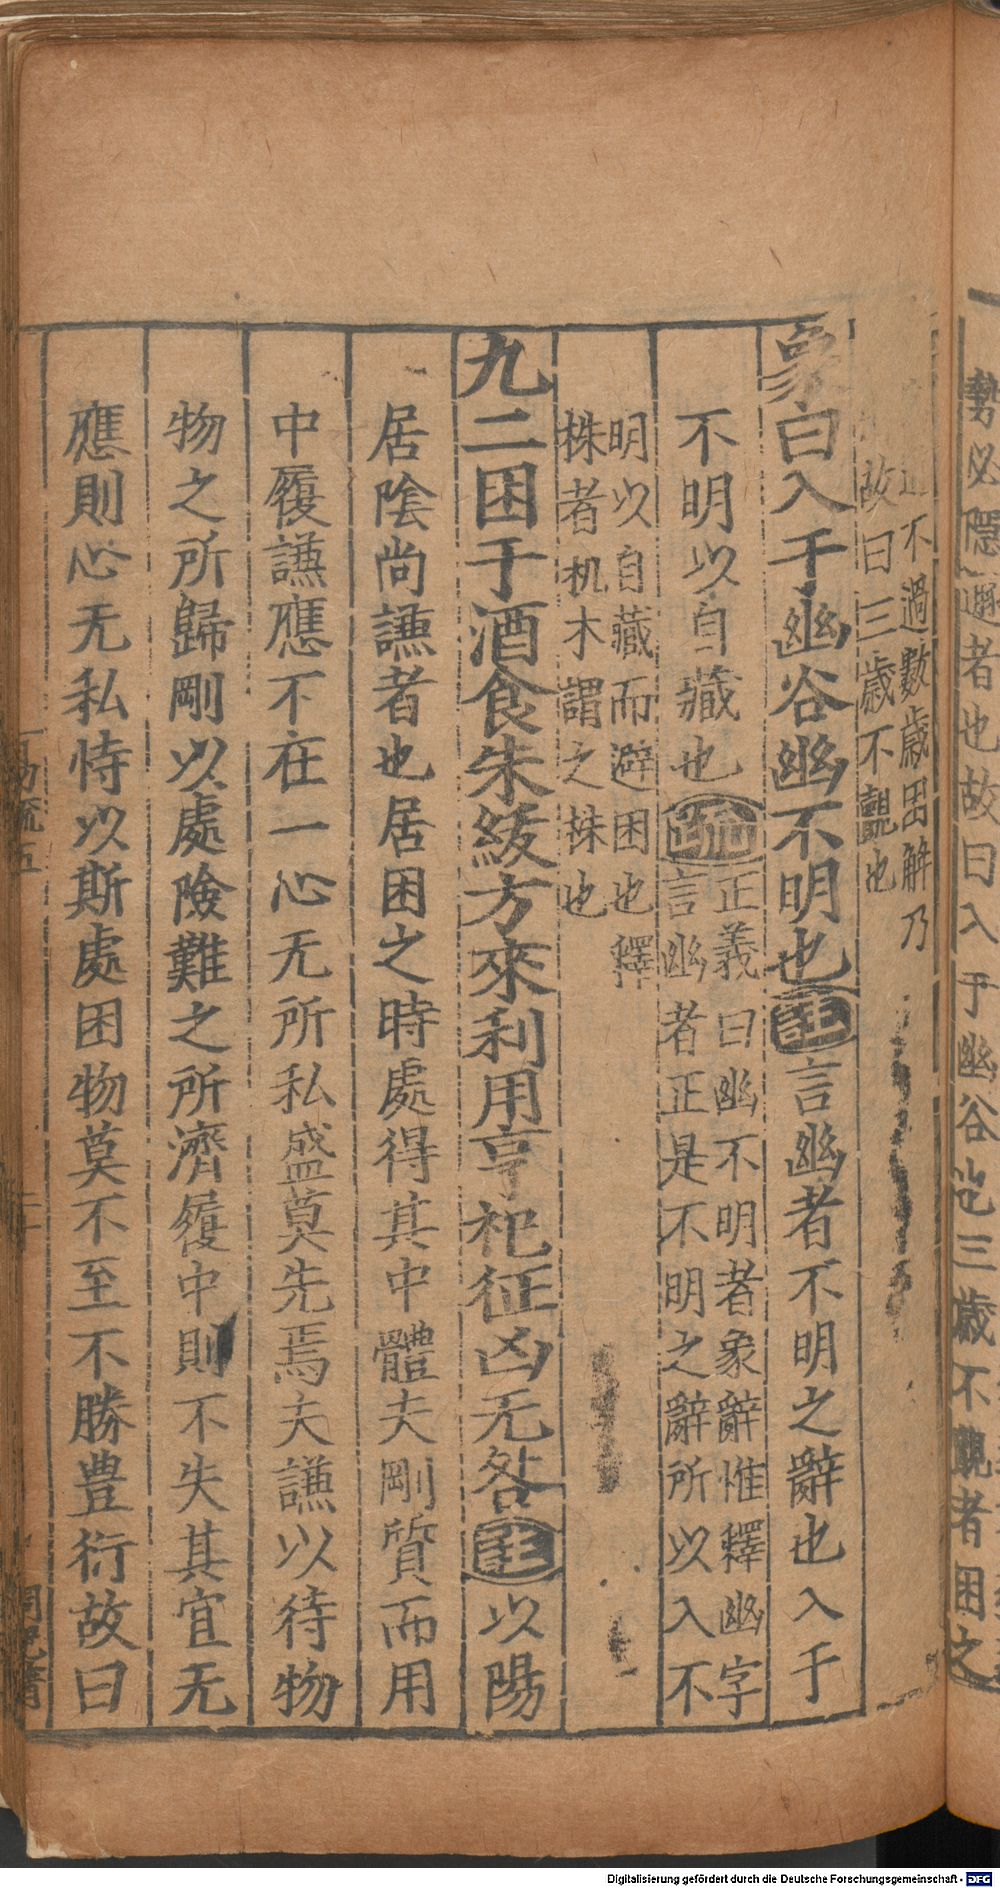 勢必隱遯者也故曰入于幽谷也三歲不覿者困之
道不過數歲困解乃
故曰三歲不覿也
象曰入于幽谷幽不明也註言幽者不明之辭也入于
不明以自藏也疏正義曰幽不明者象辭惟釋幽字
言幽者正是不明之辭所以入不
明以自藏而避困也釋
株者机木謂之株也
九二困于酒食朱紱方來利用亨祀征凶无咎註以陽
居陰尚謙者也居困之時處得其中體夫剛質而用
中履謙應不在一心无所私盛莫先焉夫謙以待物
物之所歸剛以處險難之所濟履中則不失其宜无
應則心无私恃以斯處困物莫不至不勝豊衍故曰
易疏五
Digitalisierung gefördert durch die Deutsche Forschungsgemeinschaft - DFG